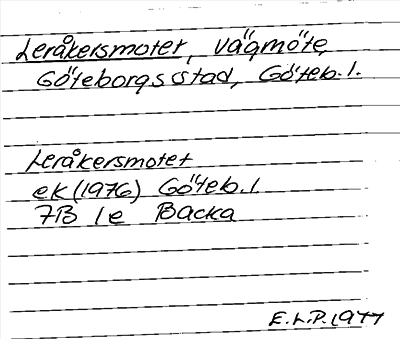 Leråkersmotet, vägmöte,
Göteborgs stad, Göteb. l.
Leråkersmotet
ek (1976) Göteb. l.
7B 1e Backa
E.L.P. 1977